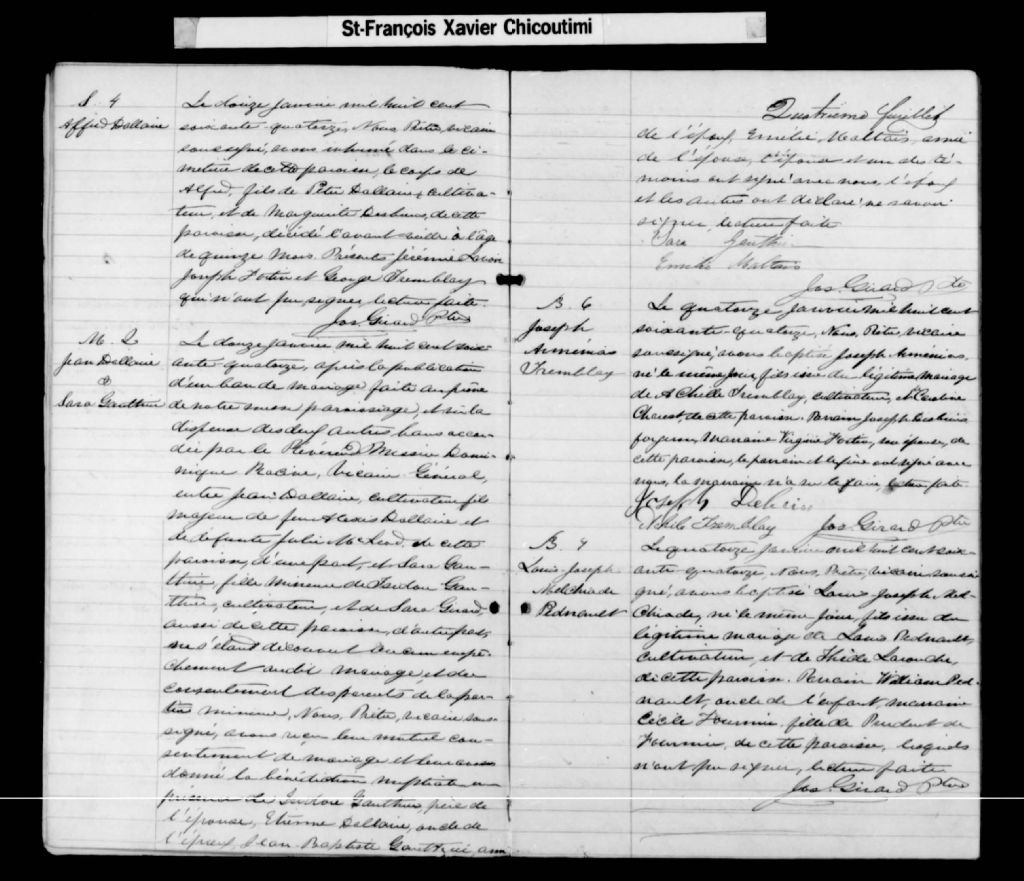 St-François Xavier Chicoutimi
S. 4
Alfred Dallaire
Le douze janvier mil huit cent
soixante-quatorze, Nous, Prêtre, vicaire
soussigné, avons inhumé dans le ci-
metière de cette paroisse, le corps de
Alfred, fils de Peter Dallaire, cultiva-
teur, et de Marguerite Desbiens, de cette
paroisse, décédé l'avant-veille à l'âge
de quinze mois. Présents Jérémie
Joseph Fortin et George Tremblay
qui n'ont pu signer, lecture faite.
Jos. Girard Ptre
M. 2
Jean Dallaire
&
Sara Gauthier
Le douze janvier mil huit cent soix-
ante quatorze, après la publication
d'un ban de mariage faite au prône
de notre messe paroissiale, et vu la
dispense des deux autres bans accor-
dée par le Révérend Messire Domi-
nique Racine, Vicaire Général,
entre Jean Dallaire, cultivateur, fils
majeur de feu Alexis Dallaire et
de défunte Julie McLeod de cette
paroisse, d'une part, et Sara Gau-
thier, fille mineure de Isidore Gau-
thier, cultivateur, et de Sara Girard,
aussi de cette paroisse, d'autre part,
ne s'étant découvert aucun empê-
chement audit mariage et du
consentement des parents de la par-
tie mineure, Nous, Prêtre, vicaire sous-
signé, avons reçu leur mutuel con-
sentement de mariage et leur avons
donné la bénédiction nuptiale en
présence de Isidore Gauthier, père de
l'épouse, Etienne Dallaire, oncle de
l'époux, Jean-Baptiste Gauthier, ami
Quatrième feuillet
de l'époux, Emélie Maltais, amie
de l'épouse, l'épouse et un des té-
moins ont signé avec nous, l'époux
et les autres ont déclaré ne savoir
signer, lecture faite
Sara Gauthier
Emelie Maltais
Jos. Girard Ptre
B. 6
Joseph
Arménias
Tremblay
Le quatorze janvier mil huit cent
soixante-quatorze, Nous, Prêtre, vicaire
soussigné, avons baptisé Joseph Arménias,
né le même jour, fils issu du légitime mariage
de Achille Tremblay, cultivateur, et Caroline
de cette paroisse. Parrain Joseph Desbiens
forgeron, Marraine Virginie Fortin, son épouse, de
cette paroisse, le parrain et le père ont signé avec
nous, la marraine n'a su le faire, lecture faite
Joseph Debien
Achile Tremblay Jos. Girard Ptre
B. 7
Louis-Joseph
Melchiade
Pednault
Le quatorze janvier mil huit cent soix-
ante-quatorze, Nous, Prêtre, vicaire soussi-
gné, avons baptisé Louis Joseph Mel-
chiade, né le même jour, fils issu du
légitime mariage de Louis Pednault,
cultivateur, et de
de cette paroisse. Parrain William Ped-
nault, oncle de l'enfant, marraine
Cécile Fournier, fille de Prudent
Fournier, de cette paroisse, lesquels
n'ont pu signer, lecture faite
Jos. Girard Ptre